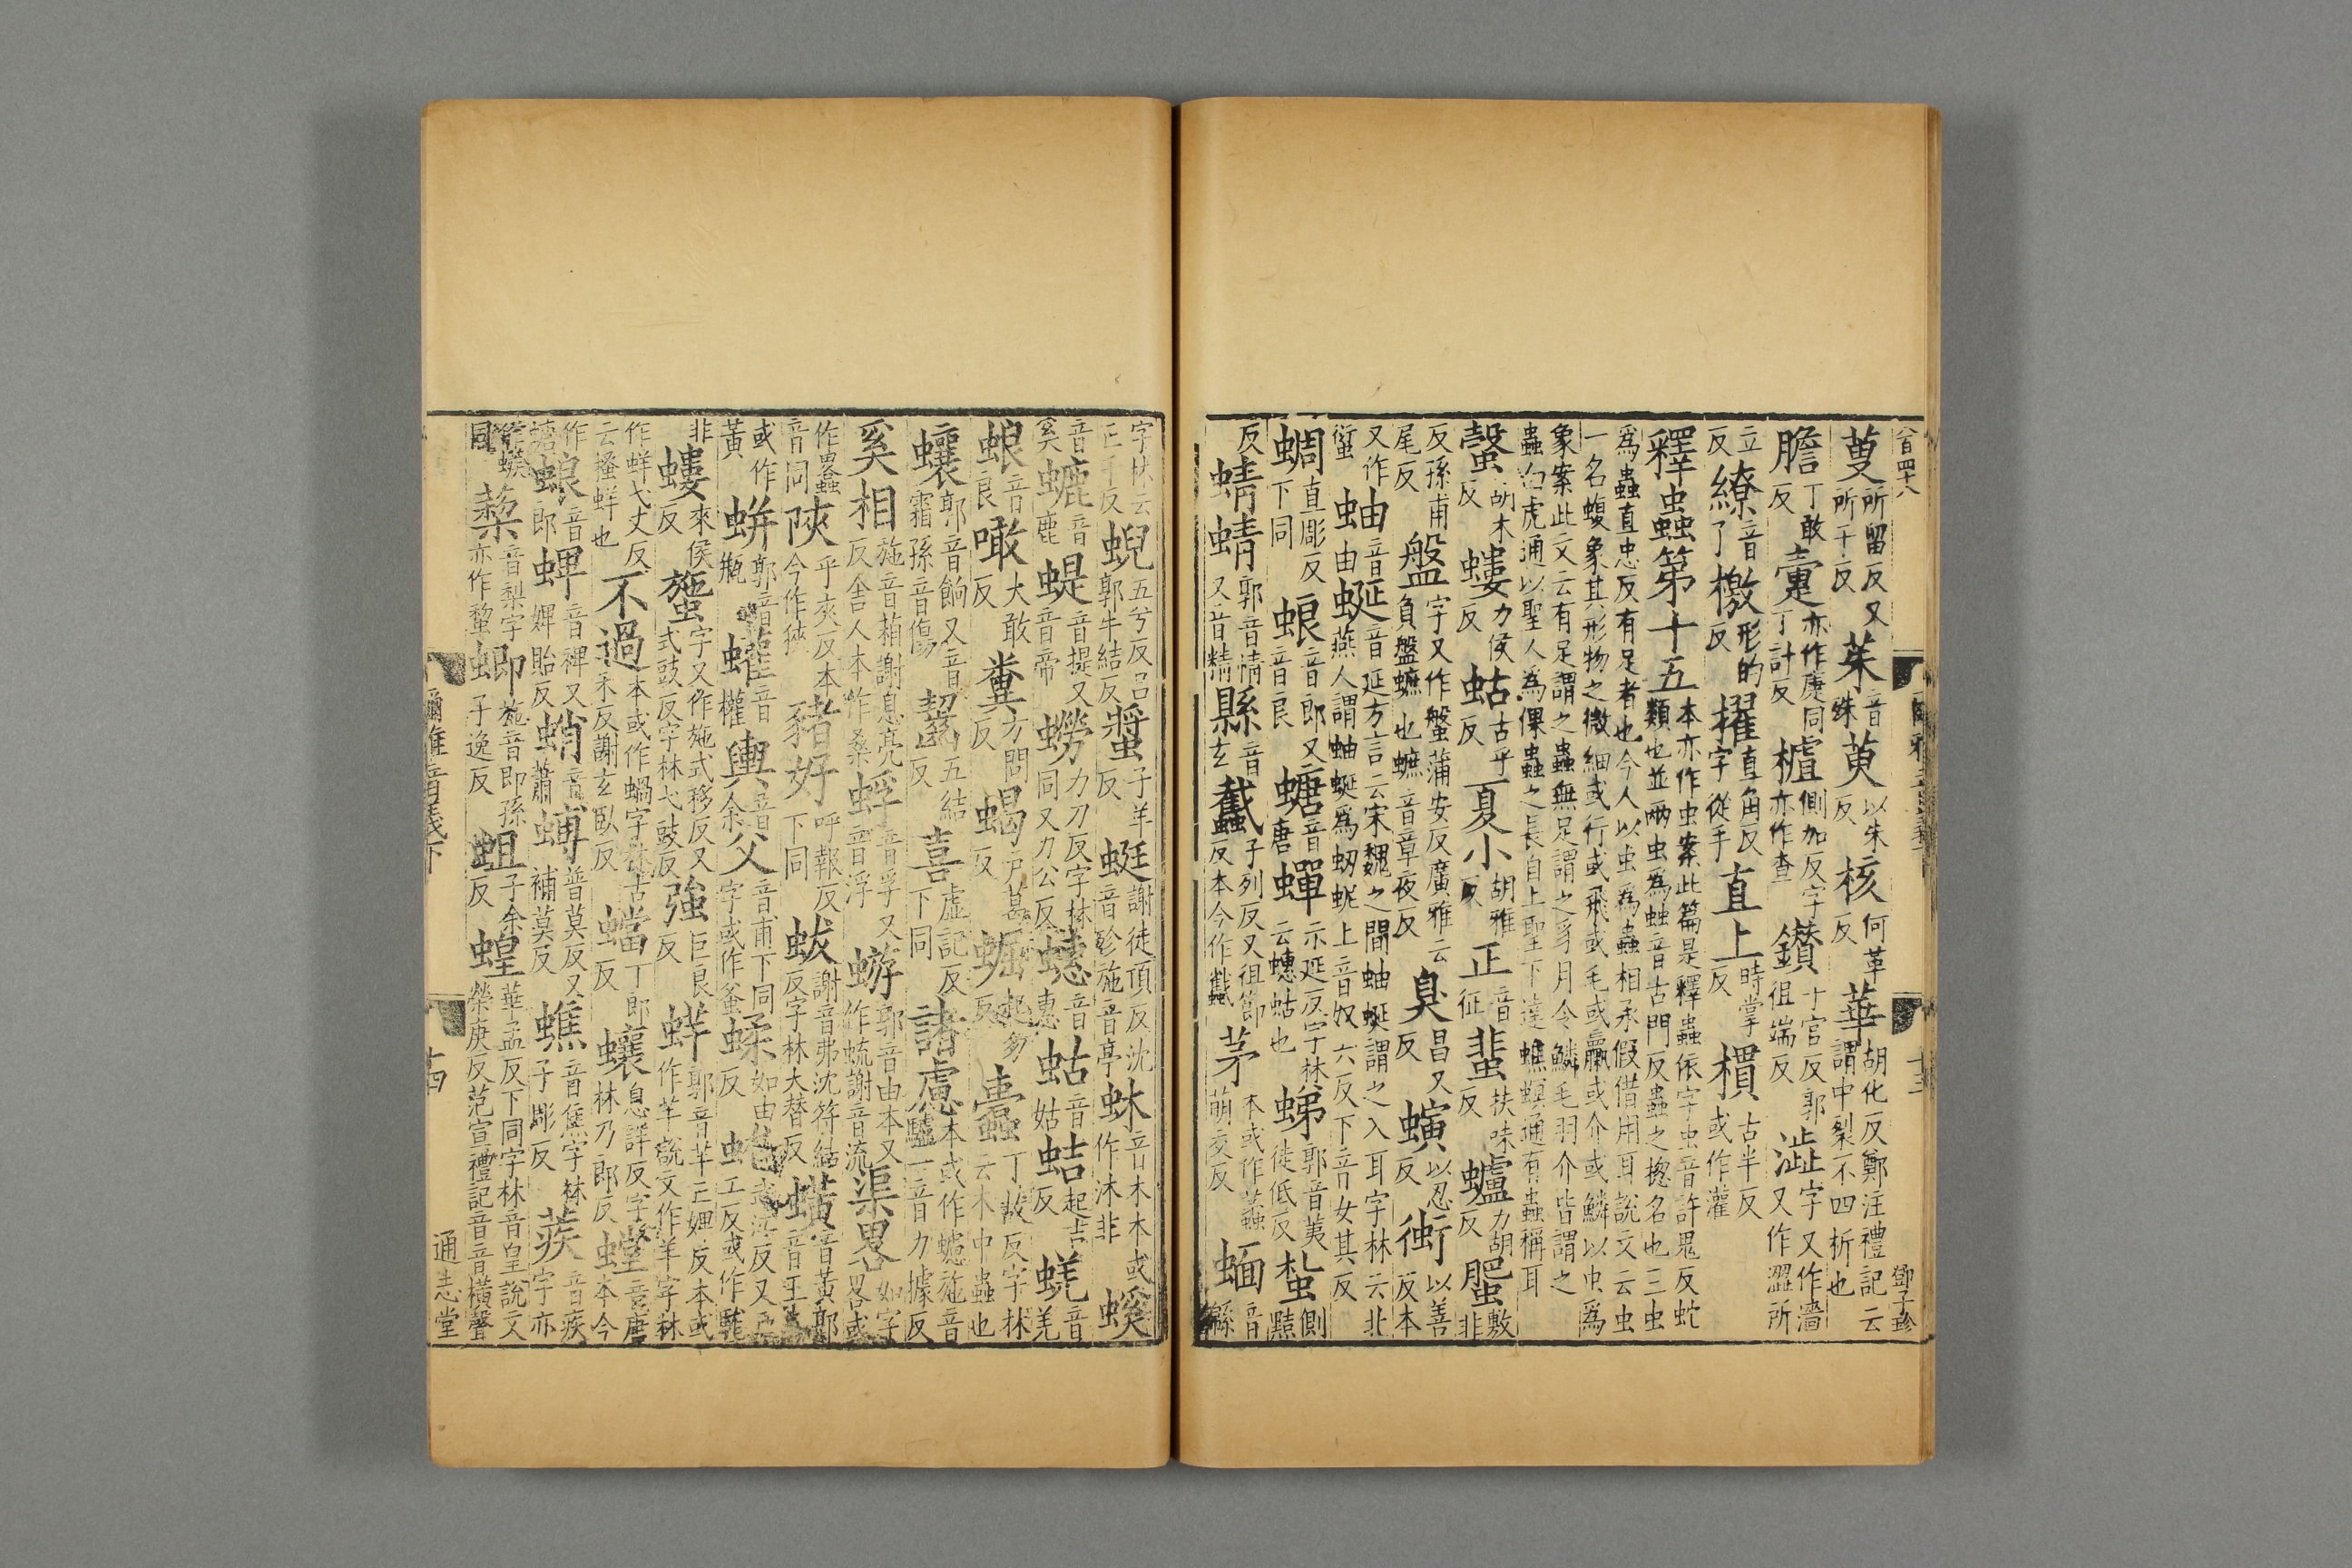 八百四十八
蓃所留反又所于反茱音殊萸以朱反核何革反華胡化反鄭注禮記云謂中裂不四析也
膽丁敢反疐亦作同丁計反樝側加反字亦作查鑽十官反郭徂端反澁字又作濇又作澀所
立反繚音了檄形的反擢直角反字從手直上時掌反樌古半反或作灌
釋蟲第十五本亦作虫案此篇是釋蟲依字虫音許鬼反蛇類也並兩虫為䖵音古門反蟲之揔名也三虫
為蟲直忠反有足者也今人以虫為蟲相承假借用耳說文云虫一名蝮象其形物之微細或行或飛或毛或蠃或介或鱗以虫為
象案此文云有足謂之蟲無足謂之豸月令鱗毛羽介皆謂之蟲白虎通以聖人為倮蟲之長自上聖下達蟭螟通有蟲稱耳
螜胡木反螻力侯反蛄古乎反夏小胡雅反正音征蜚扶味反蠦力胡反蜰敷非
反孫甫尾反盤字又作螌蒲安反廣雅云負盤蟅也蟅音章夜反臭昌又反螾以忍反衝以善反本
又作蚰音由蜒音延方言云宋魏之間蚰蜒謂之入耳字林云北燕人謂蚰蜒為䖡蚭上音奴六反下音女其反
蜩直彫反下同蜋音郎又音良螗音唐蟬示延反字林云蟪蛄也蝭郭音荑徒低反蚻側黠
反蜻蜻郭音情又音精縣音玄蠽子列反又徂節反本今作蠽茅本或作蟊萌交反蝒音緜
十三
鄧子珍
字林云亡千反蜺五兮反呂郭牛結反螿子羊反蜓謝徒頂反沈音殄施音亭蚞音木本或作沐非螇
音奚螰音鹿蝭音提又音帝蟧力刀反字林同又力公反蟪音惠蛄音姑蛣起吉反蜣音羌
蜋音良噉大敢反糞方問反蝎戶葛反起勿反蠹丁故反字林云木中蟲也
蠰郭音餉又音霜孫音傷齧五結反喜虛記反下同諸慮本或作施音驢一音力據反
奚相施音葙謝息亮反舍人本作桑蜉音孚又音浮蝣郭音由本又作謝音流渠畧如字畧或
作音同陝乎夾反本今作狹豬好呼報反下同蛂謝音弗沈符結反字林大替反蟥音黃郭音王本
或作黃蛢郭音瓶蠸音權輿音余父音甫下同字或作蝚如由反
非螻來侯反字又作施式移反又式豉反字林弋豉反強巨良反蛘郭音羊亡婢反本或作芊說文作羊字林
作蛘弋丈反云搔蛘也不過本或作蝸字林古禾反謝玄臥反蟷丁郎反蠰息詳反字林乃郎反螳音唐本今
作螗蜋音郎蜱音裨又婢貽反蛸音蕭普莫反又補莫反蟭音焦字林子彫反蒺音疾字亦
同音梨字亦作蝍施音即孫子逸反蛆子余反蝗華孟反下同字林音皇說文榮庚反范宣禮記音音橫聲
爾雅音義下
十四
通志堂